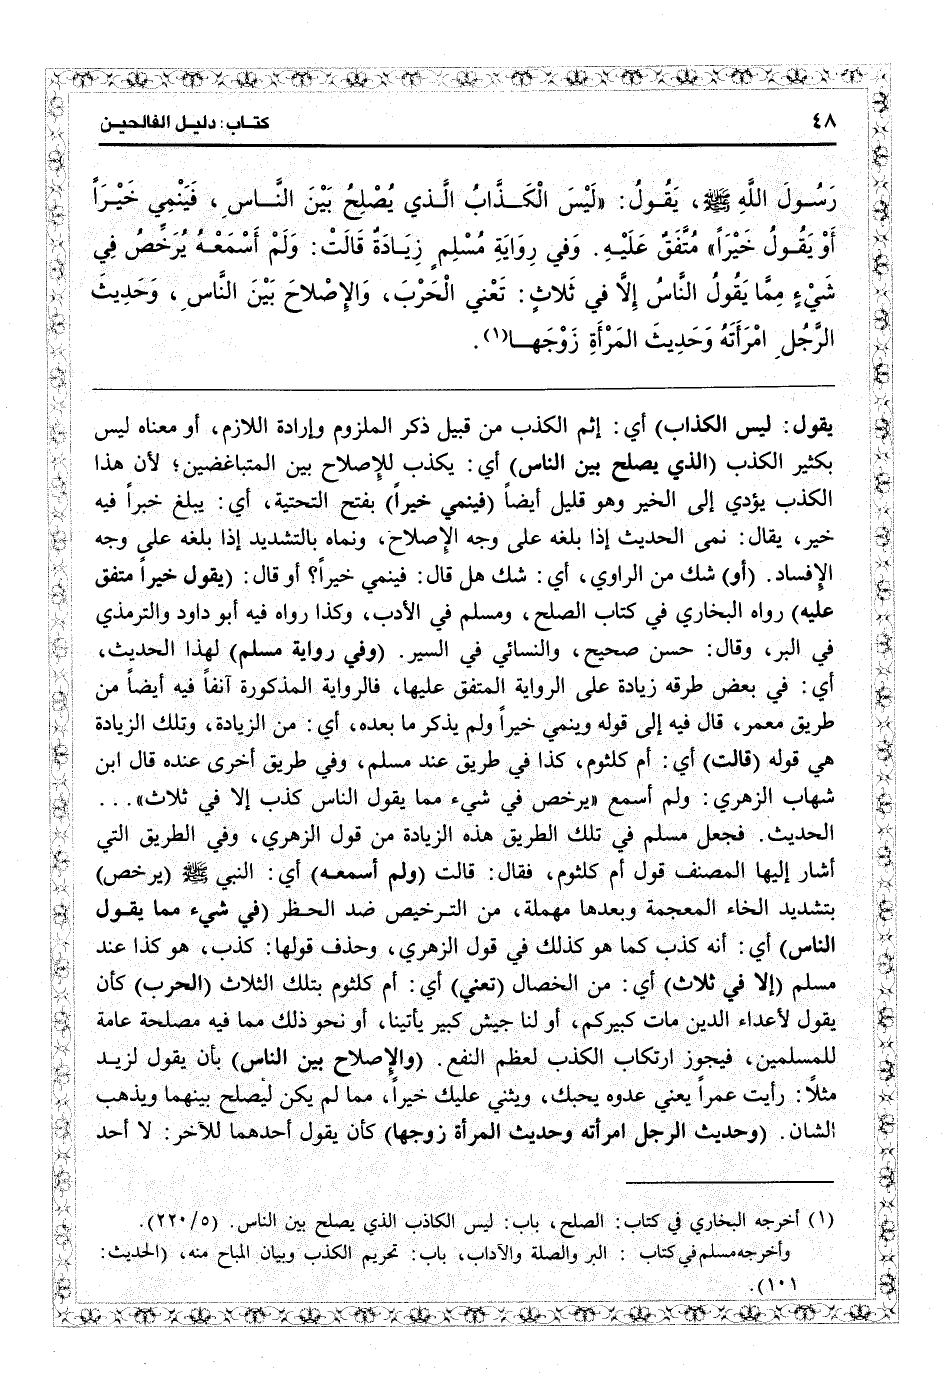 ٤٨
كتاب: دليل الفالحين
رَسُولَ اللَّهِ ﷺ، يَقُولُ: «لَيْسَ الْكَذَّابُ الَّذي يُصْلِحُ بَيْنَ النَّاسِ، فَيَنْمِي خَيْرَاً
أَوْ يَقُولُ خَيْرَاً» مُتَّفَقٌ عَلَيْهِ. وَفي رِوَايَةِ مُسْلِمٍ زِيَادَةٌ قَالَتْ: وَلَمْ أَسْمَعْهُ يُرَخِّصُ فِي
شَيْءٍ مِمَّا يَقُولُ النَّاسُ إلَّا في ثَلاثٍ: تَعْني الْحَرْبَ، وَالإصْلاحَ بَيْنَ النَّاسِ، وَحَدِيثَ
الرَّجُلِ امْرَأَتَهُ وَحَدِيثَ المَرْأَةِ زَوْجَهَا(١).
يقول: ليس الكذاب) أي: إثم الكذب من قبيل ذكر الملزوم وإرادة اللازم، أو معناه ليس
بكثير الكذب (الذي يصلح بين الناس) أي: يكذب للإصلاح بين المتباغضين؛ لأن هذا
الكذب يؤدي إلى الخير وهو قليل أيضاً (فينمي خيراً) بفتح التحتية، أي: يبلغ خبراً فيه
خير، يقال: نمى الحديث إذا بلغه على وجه الإصلاح، ونماه بالتشديد إذا بلغه على وجه
الإفساد. (أو) شك من الراوي، أي: شك هل قال: فينمي خيراً؟ أو قال: (يقول خيراً متفق
عليه) رواه البخاري في كتاب الصلح، ومسلم في الأدب، وكذا رواه فيه أبو داود والترمذي
في البر، وقال: حسن صحيح، والنسائي في السير. (وفي رواية مسلم) لهذا الحديث،
أي: في بعض طرقه زيادة على الرواية المتفق عليها، فالرواية المذكورة آنفاً فيه أيضاً من
طريق معمر، قال فيه إلى قوله وينمي خيراً ولم يذكر ما بعده، أي: من الزيادة، وتلك الزيادة
هي قوله (قالت) أي: أم كلثوم، كذا في طريق عند مسلم، وفي طريق أخرى عنده قال ابن
شهاب الزهري: ولم أسمع «يرخص في شيء مما يقول الناس كذب إلا في ثلاث»...
الحديث. فجعل مسلم في تلك الطريق هذه الزيادة من قول الزهري، وفي الطريق التي
أشار إليها المصنف قول أم كلثوم، فقال: قالت (ولم أسمعه) أي: النبي ﷺ (يرخص)
بتشديد الخاء المعجمة وبعدها مهملة، من الترخيص ضد الحظر (في شيء مما يقول
الناس) أي: أنه كذب كما هو كذلك في قول الزهري، وحذف قولها: كذب، هو كذا عند
مسلم (إلا في ثلاث) أي: من الخصال (تعني) أي: أم كلثوم بتلك الثلاث (الحرب) كأن
يقول لأعداء الدين مات كبيركم، أو لنا جيش كبير يأتينا، أو نحو ذلك مما فيه مصلحة عامة
للمسلمين، فيجوز ارتكاب الكذب لعظم النفع. (والإصلاح بين الناس) بأن يقول لزيد
مثلاً: رأيت عمراً يعني عدوه يحبك، ويثني عليك خيراً، مما لم يكن ليصلح بينهما ويذهب
الشان. (وحديث الرجل امرأته وحديث المرأة زوجها) كأن يقول أحدهما للآخر: لا أحد
(١) أخرجه البخاري في كتاب: الصلح، باب: ليس الكاذب الذي يصلح بين الناس. (٢٢٠/٥).
وأخرجه مسلم في كتاب : البر والصلة والآداب، باب: تحريم الكذب وبيان المباح منه، (الحديث:
١٠١).